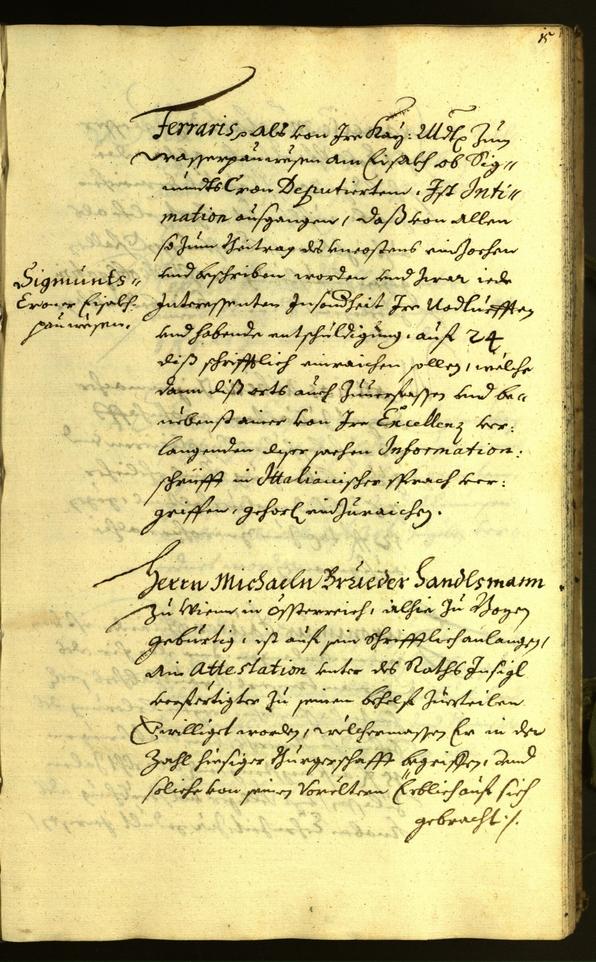 15
Ferraris, als von Irr Kay: Mtt: Zum
wasserpauwesen am Eisakh ob Sig-
mundts Cron Deputiertem. Ist Inti-
mation ausgangen, daß von allen
so zum Beitrag des uncostens einzochen
und beschriben worden und zwar iede
Interessenten Insonheit Ire
und habende entschuldigung, auf 24
diß schrifftlich einraichen sollen, welche
dann diß orts auch Zuuerfassen und be-
nebenst ainer von Irr Excellenz ver:
langenden diser sachen Information:
schrifft in Ittalianischer sprach ver:
griffen, gehorsl einzuraichen.
Sigmunts-
Croner Eisakh-
pauwesen.
Herrn Michaeln Brueder Handlsmann
Zu Wienn in Össterreich, alhie Zu Bozen
gebürtig, ist auf sein schrifftlich anlangen,
ain Attestation unter des Raths Insigl
verfertigter Zu seinem behelf Zuerteilen
Bewilliget worden, welchermassen Er in der
Zahl hiesiger Burgerschafft begriffen, und
soliche von seinen Voreltern Erblich auf sich
gebracht /.